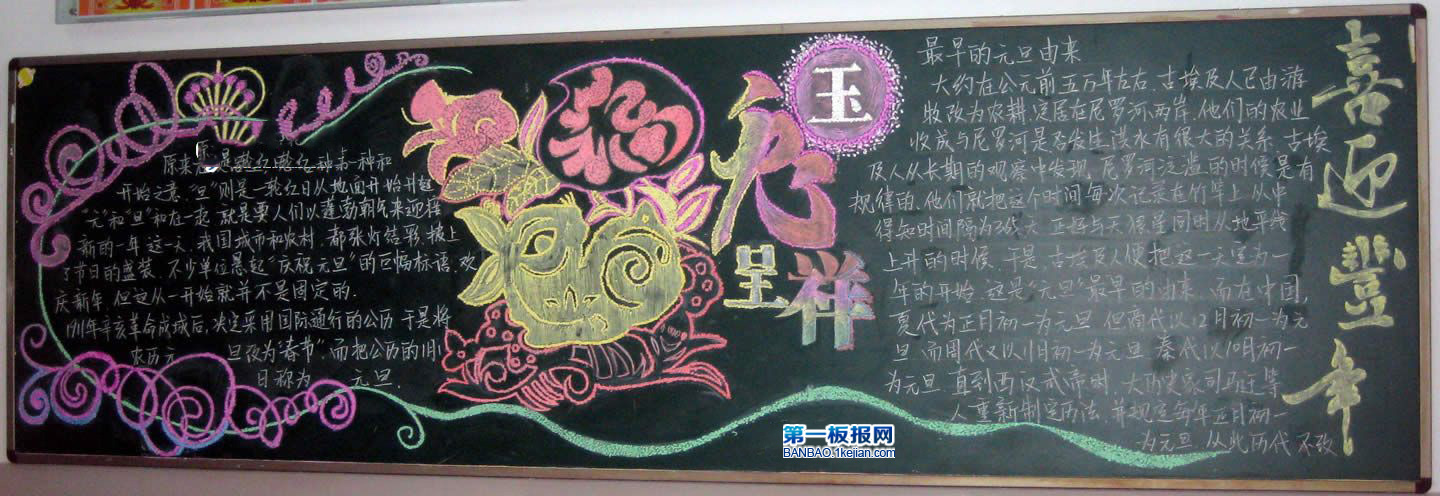 原来
开始之意."旦"则是一轮红日从地面开始升起
"元"和"旦"和在一起 就是要人们以蓬勃朝气来迎接
新的一年 这一天 我国城市和农村 都张灯结彩,披上
了节日的盛装、不少单位悬起"庆祝元旦"的巨幅标语,欢
庆新年.但这从一开始就并不是固定的.
1911年辛亥革命成功后,决定采用国际通行的公历 于是将
农历元 旦改为"春节",而把公历的1月1
日称为 元旦.
玉
兔
呈
祥
最早的元旦由来
大约在公元前五万年左右,古埃及人已由游
牧改为农耕,定居在尼罗河两岸,他们的农业
收成与尼罗河是否发生洪水有很大的关系.古埃
及人从长期的观察中发现,尼罗河泛滥的时候是有
规律的,他们就把这个时间每次记录在竹竿上,从中
得知时间隔为365天 正好与天狼星同时从地平线
上升的时候,于是,古埃及人便把这一天定为一
年的开始.这是"元旦"最早的由来.而在中国,
夏代为正月初一为元旦 但商代以12月初一为元
旦.而周代又以11月初一为元旦 秦代以10月初一
为元旦 直到西汉武帝时 大历史家司马迁等
人重新制定历法 并规定每年正月初一
为元旦.从此历代不改
喜迎豐年
第一板报网
BANBAO.1kejian.com